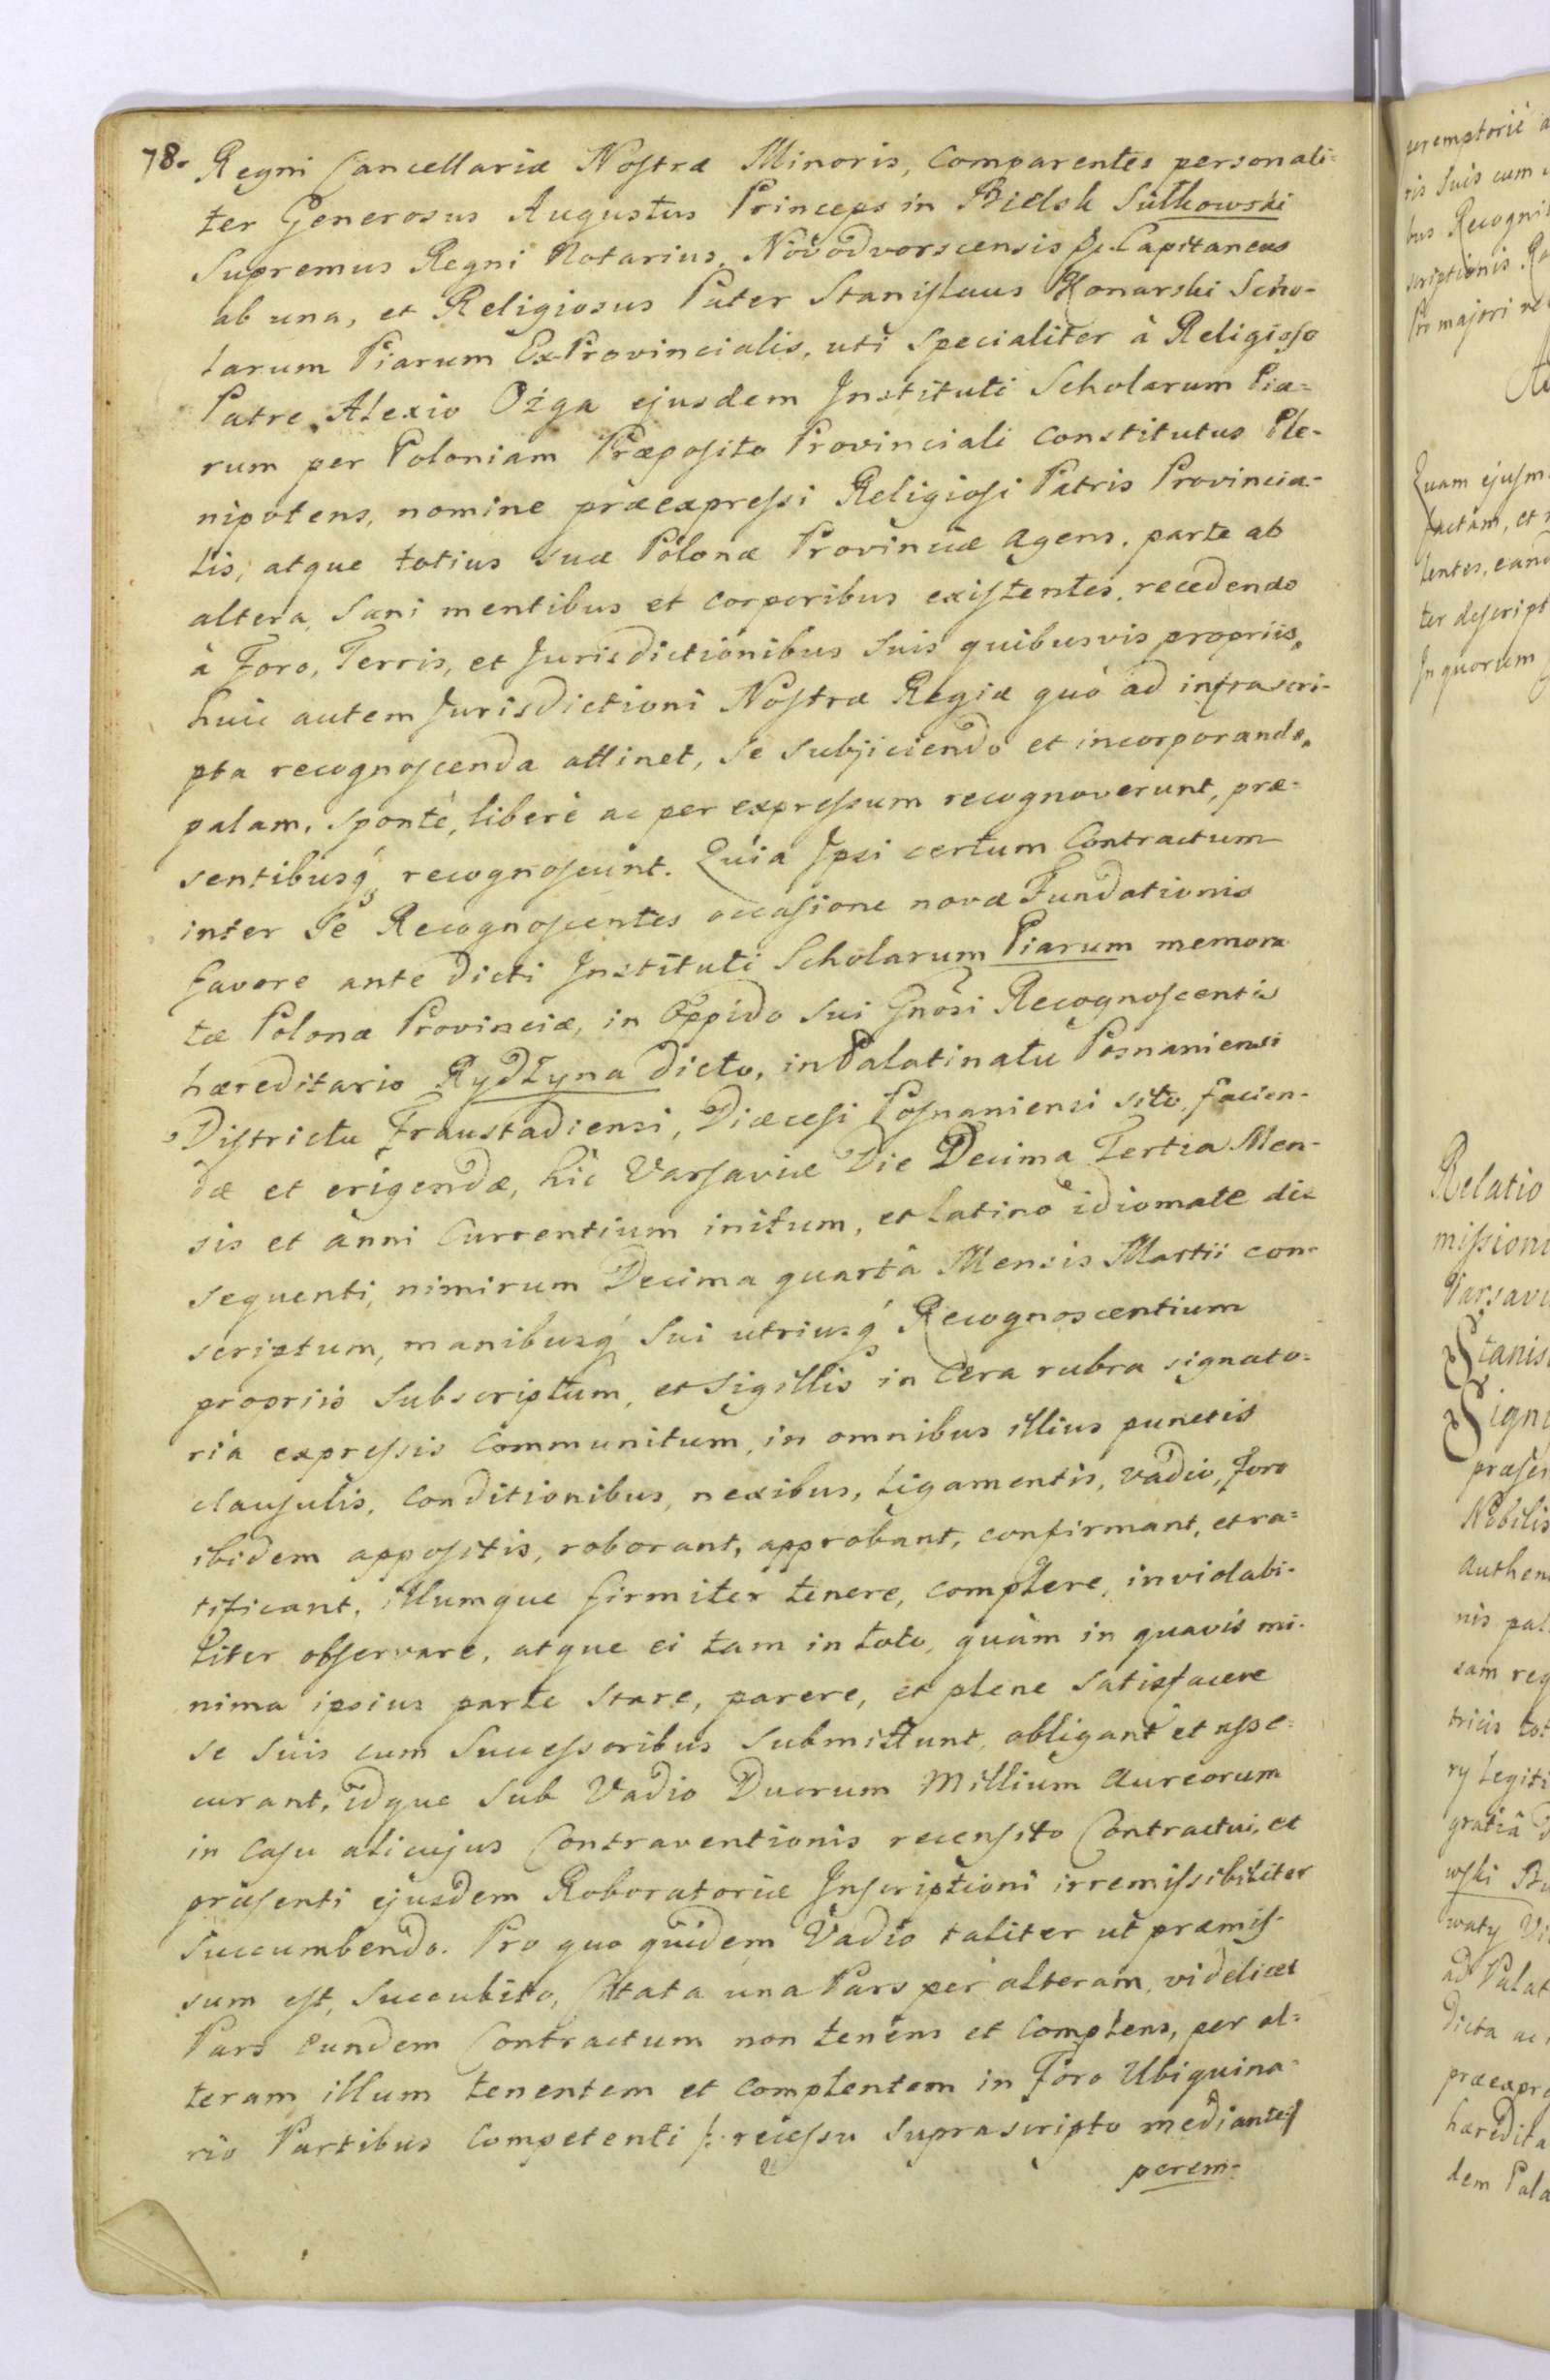 78. Regni Cancellariæ Nostræ Minoris, Comparentes personali=
ter Generosus Augustus Princeps in Bielsk Sułkowski
Supremus Regni Notarius, Novodvorscensis &c. Capitaneus
ab una, et Religiosus Pater Stanislaus Konarski Scho-
larum Piarum Ex-Provincialis, uti specialiter à Religioso
Patre Alexio Ożga ejusdem Instituti Scholarum Pia=
rum per Poloniam Præposito Provinciali constitutus Ple-
nipotens, nomine præexpressi Religiosi Patris Provincia-
lis, atque totius suæ Polonæ Provinciæ agens, parte ab
altera, Sani mentibus et corporibus existentes, recedendo
à Foro, Terris, et Jurisdictionibus Suis quibusvis propriis,
huic autem Jurisdictioni Nostræ Regiæ quò ad infrascri-
pta recognoscenda attinet, se subjiciendo et incorporando,
palam, spontè, liberè ac per expressum recognoverunt, præ-
sentibusq́ recognoscunt. Quia Ipsi certum Contractum
inter Se Recognoscentes occasione novæ Fundationis
favore ante dicti Instituti Scholarum Piarum memora
tæ Polonæ Provinciæ, in Oppido sui Gnosi Recognoscentis
hæreditario Rydzyna dicto, in Palatinatu Posnaniensi
Districtu Fraustadiensi, Diæcesi Posnaniensi sito, facien-
dæ et erigendæ, hic Varsaviæ Die Decima Tertia Men-
sis et anni Currentium initum, et latino idiomate die
sequenti, nimirum Decima quartâ Mensis Martii con-
scriptum, manibusq́ Sui utriusq́ Recognoscentium
propriis Subscriptum, et Sigillis in Cera rubra signato=
ria expressis communitum, in omnibus illius punctis
clausulis, conditionibus, nexibus, ligamentis, vadio, foro
ibidem appositis, roborant, approbant, confirmant, et ra=
tificant, illumque firmiter tenere, complere, inviolabi-
liter observare, atque ei tam in toto, quàm in quavis mi-
nima ipsius parte stare, parere, et plene satisfacere
se suis cum Successoribus Submittunt, obligant et asse=
curant, idque Sub Vadio Duorum Millium Aureorum
in Casu alicujus Contraventionis recensito Contractui, et
præsenti ejusdem Roboratoriæ Inscriptioni irremissibiliter
succumbendo. Pro quo quidem Vadio taliter ut præmis-
sum est, succubito, Citata una Pars per alteram, videlicet
Pars eundem Contractum non tenens et Complens, per al=
teram illum tenentem et complentem in Foro Ubiquina=
rio Partibus Competenti /: recessu Suprascripto mediante:/
perem-